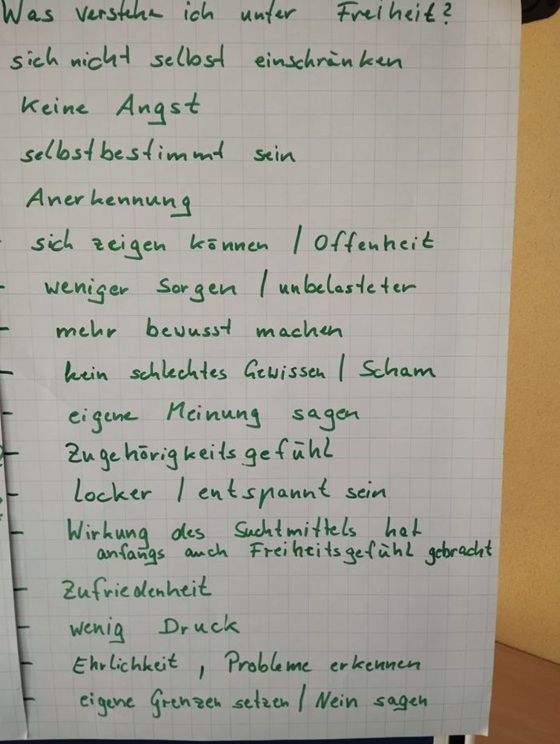 Was verstehe ich unter Freiheit?
sich nicht selbst einschränken
keine Angst
selbstbestimmt sein
Anerkennung
sich zeigen können / Offenheit
- weniger Sorgen / unbelasteter
- mehr bewusst machen
- kein schlechtes Gewissen / Scham
- eigene Meinung sagen
- Zugehörigkeitsgefühl
- locker / entspannt sein
- Wirkung des Suchtmittels hat
anfangs auch Freiheitsgefühl gebracht
- Zufriedenheit
- wenig Druck
- Ehrlichkeit, Probleme erkennen
- eigene Grenzen setzen / Nein sagen